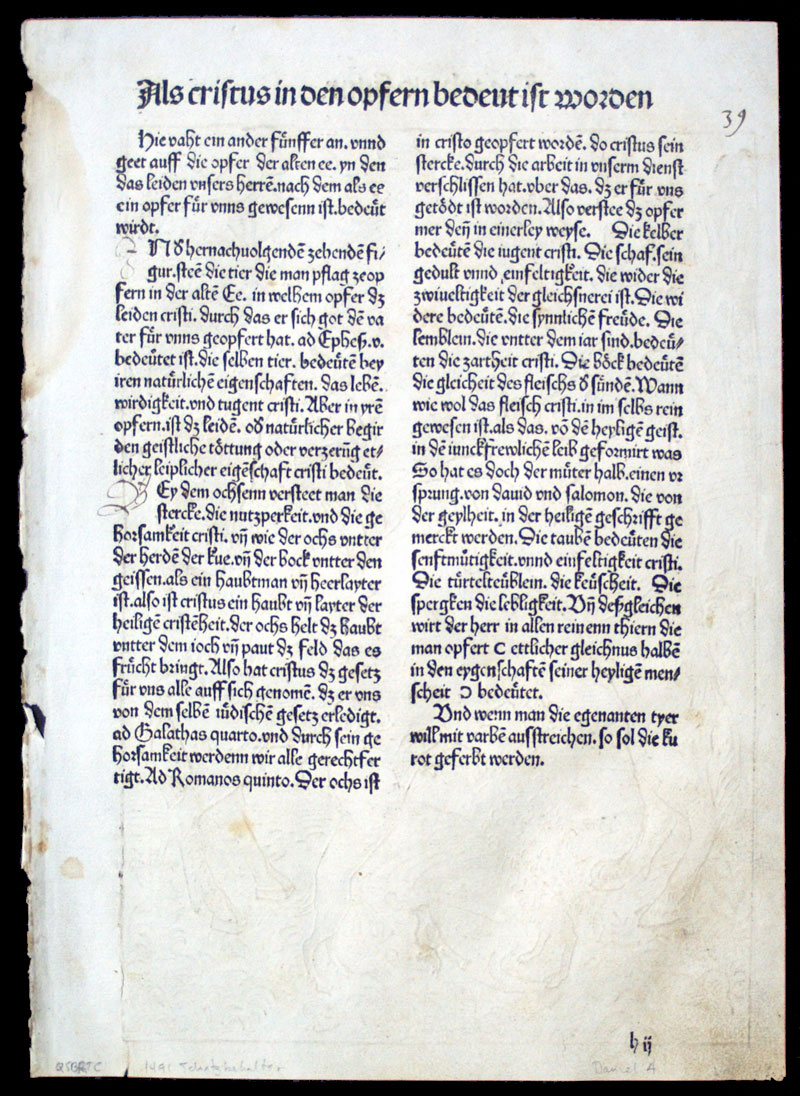 Als cristus in den opfern bedeut ist worden
39
Hie vaht ein ander fůnffer an. vnnd
geet auff die opfer der alten ee. yn den
das leiden vnsers herrē. nach dem als ee
ein opfer fůr vnns gewesenn ist. bedeůt
wirdt.
N ď hernachuolgendē zehendē fi/
gur. steē die tier die man pflag zeop
fern in der altē Ee. in welhem opfer dz
leiden cristi. durch das er sich got dē va
ter fůr vnns geopfert hat. ad Ephes. v.
bedeůtet ist. die selben tier. bedeůtē bey
iren natůrlichē eigenschaften. das lebē.
wirdigkeit. vnd tugent cristi. Aber in yrē
opfern. ist dz leidē. oď natůrlicher begir
den geistliche tőttung oder verzerūg et/
licher leiplicher eigēschaft cristi bedeůt.
Ey dem ochsenn versteet man die
stercke. die nutzperkeit. vnd die ge
horsamkeit cristi. vn̄ wie der ochs vntter
der herdē der kue. vn̄ der bock vntter den
geissen. als ein haubtman vn̄ heerlayter
ist. also ist cristus ein haubt vn̄ layter der
heiligē cristēheit. der ochs helt dz haubt
vntter dem ioch vn̄ paut dz feld das es
frůcht bringt. Also hat cristus dz gesetz
fůr vns alle auff sich genomē. dz er vns
von dem selbē iůdischē gesetz erledigt.
ad Galathas quarto. vnd durch sein ge
horsamkeit werdenn wir alle gerechtfer
tigt. Ad Romanos quinto. Der ochs ist
in cristo geopfert wordē. do cristus sein
stercke. durch die arbeit in vnserm dienst
verschlissen hat. vber das. dz er fůr vns
getődt ist worden. Also verstee dz opfer
mer den̄ in einerley weyse. Die kelber
bedeůtē die iugent cristi. Die schaf. sein
gedult vnnd einfeltigkeit. die wider die
zwiueltigkeit der gleichsnerei ist. Die wi
dere bedeůtē. die synnlichē freůde. Die
lemblein. die vntter dem iar sind. bedeů/
ten die zartheit cristi. Die bőck bedeůtē
die gleicheit des fleischs ď sůndē. Wann
wie wol das fleisch cristi. in im selbs rein
gewesen ist. als das. vō dē heyligē geist.
in dē iunckfrewlichē leib geformirt was
So hat es doch der můter halb. einen vr
sprung. von dauid vnd salomon. die von
der geylheit. in der heiligē geschrifft ge
merckt werden. Die taubē bedeuten die
senftmůtigkeit. vnnd einfeltigkeit cristi.
Die tůrtelteůblein. die keůscheit. Die
spergken die lebligkeit. Vn̄ deßgleichen
wirt der herr in allen reinenn thiern die
man opfert C ettlicher gleichnus halbē
in den eygenschaftē seiner heyligē men/
scheit Ɔ bedeůtet.
Vnd wenn man die egenanten tyer
will mit varbē ausstreichen. so sol die ku
rot geferbt werden.
h ij
1491 Schatzbehalter
Daniel A